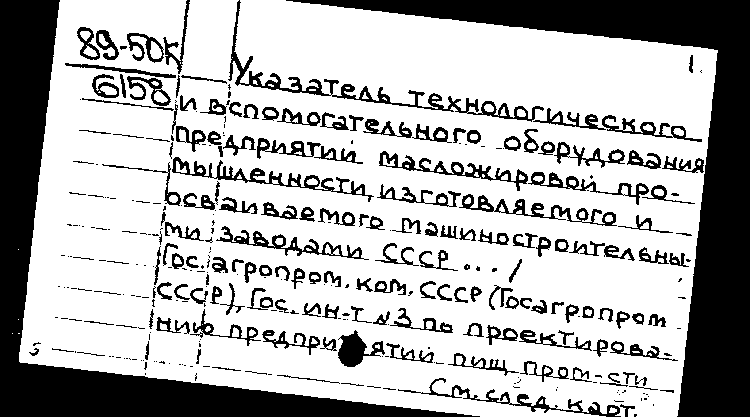 89-50К
6158
1.
Указатель технологического
и вспомогательного оборудования
предприятий масложировой про-
мышленности, изготовляемого и
осваиваемого машиностроительны-
ми заводами СССР .../
Гос. агропром. ком. СССР (Госагропром
СССР), Гос. ин-т №3 по проектирова-
нию предприятий пищ пром-сти
См. след. карт.
5